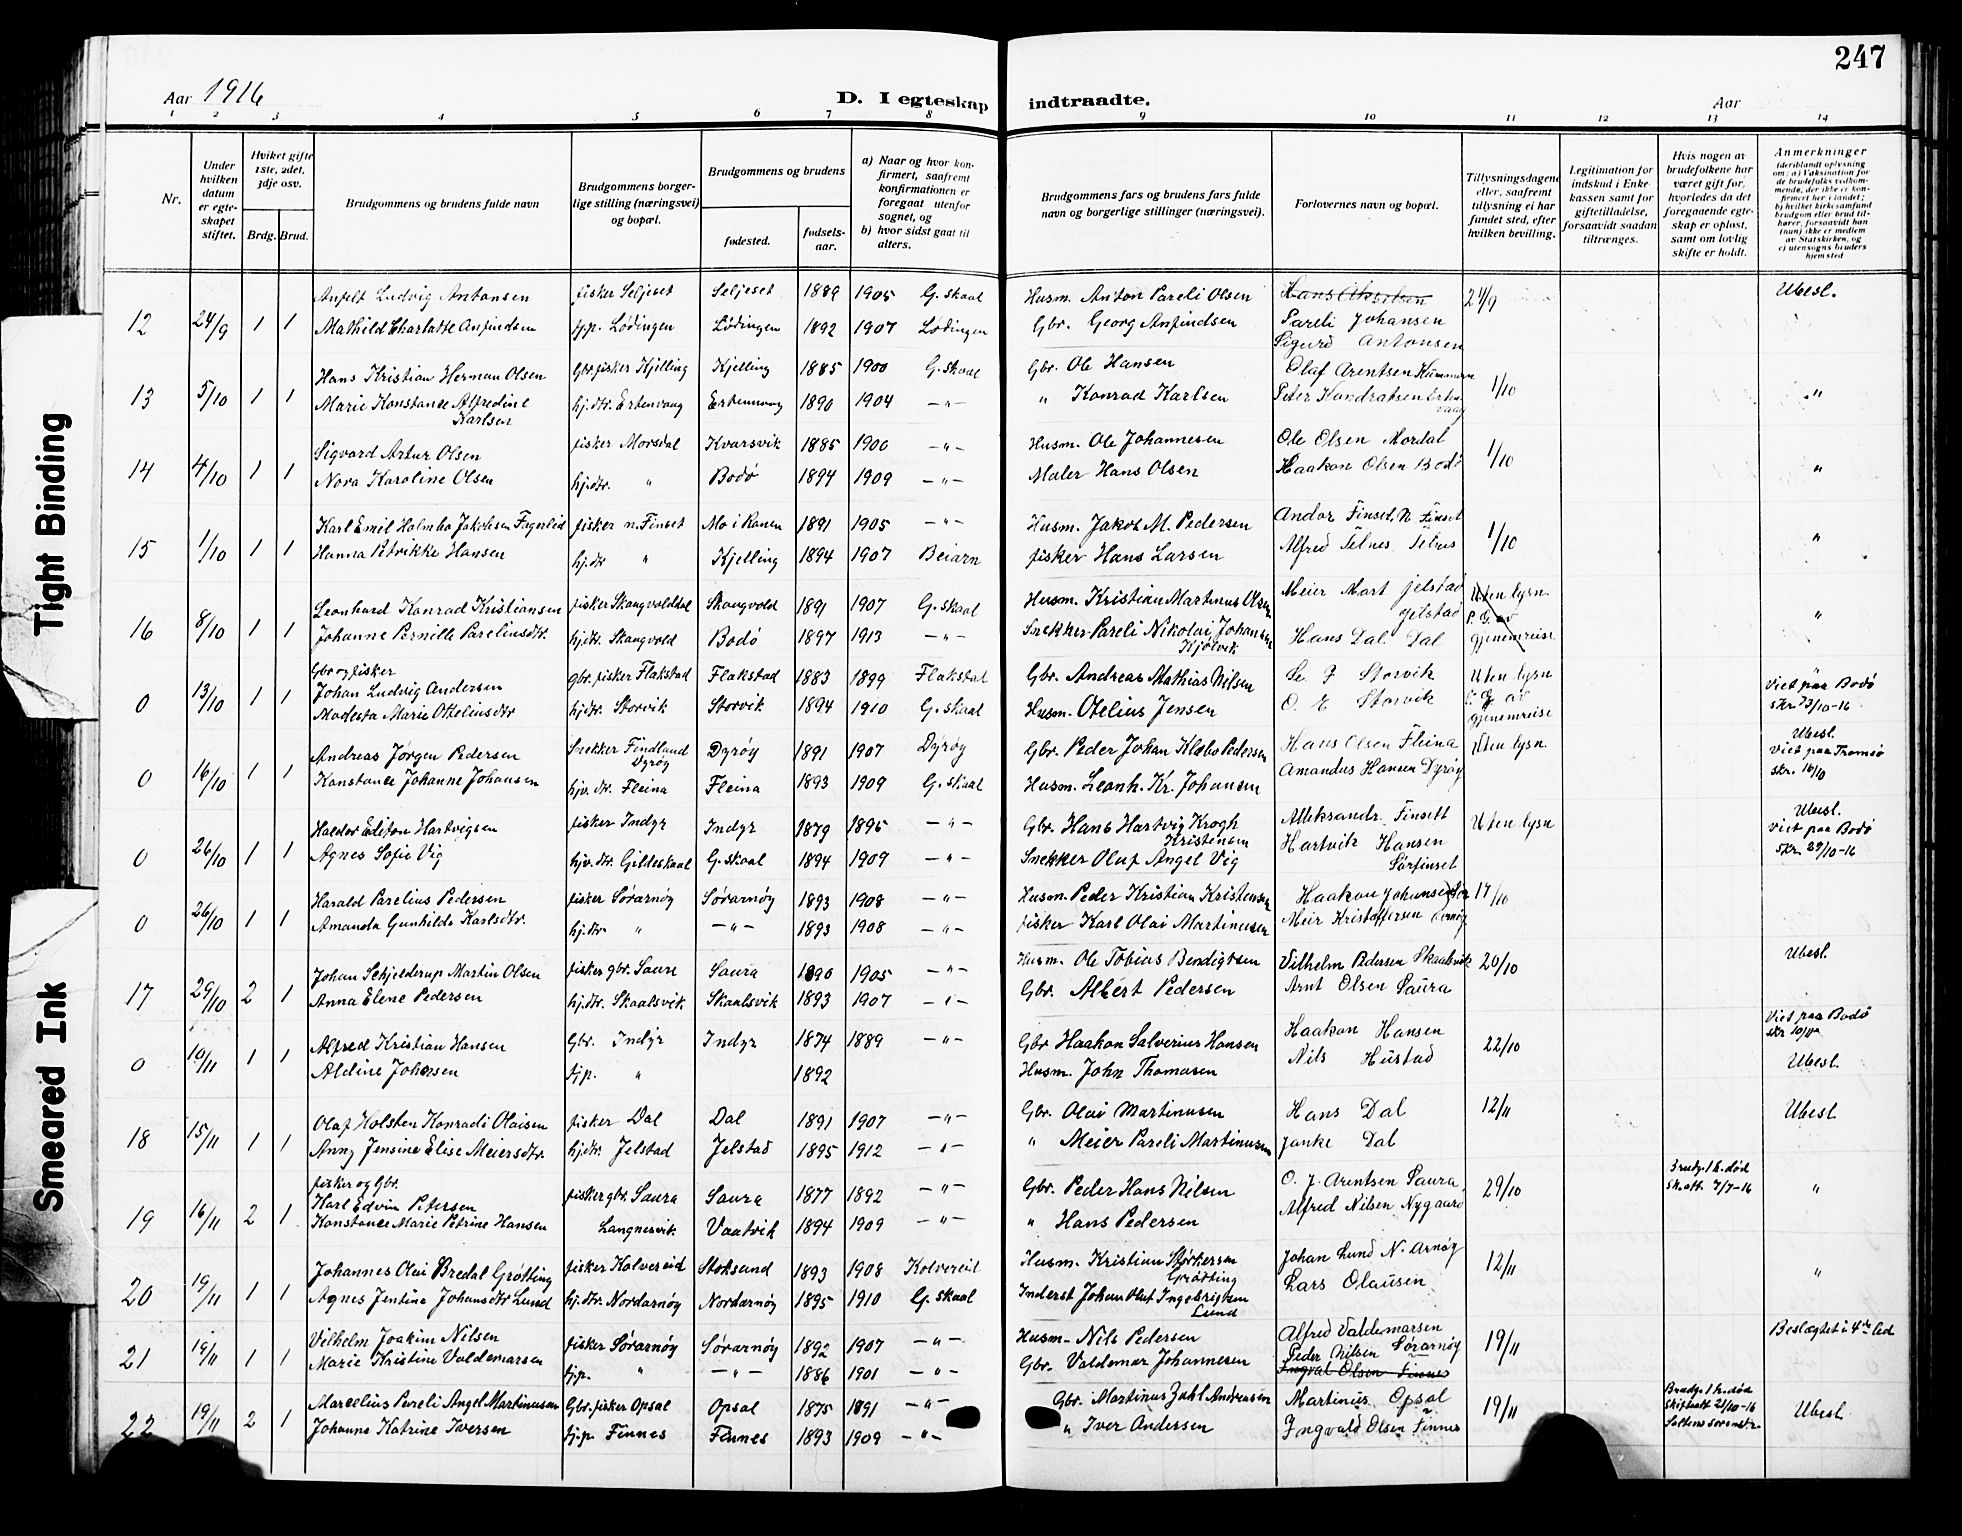 247
Aar 1916
D. I egteskap indtraadte.
Aar
1 2 3 4 5 6 7 8 9 10 11 12 13 14
Nr.
Under hvilken datum er egteskapet stiftet.
Hviket gifte 1ste, 2det, 3dje osv.
Brdg. Brud.
Brudgommens og brudens fulde navn
Brudgommens borgerlige stilling (næringsvei) og bopæl.
Brudgommens og brudens
fødested.
fødselsaar.
a) Naar og hvor konfirmert, saafremt konfirmationen er foregaat utenfor sognet, og
b) hvor sidst gaat til alters.
Brudgommens fars og brudens fars fulde navn og borgerlige stillinger (næringsvei).
Forlovernes navn og bopæl.
Tillysningsdagene eller, saafremt tillysning ei har fundet sted, efter hvilken bevilling.
Legitimation for indskud i Enkekassen samt for giftetilladelse, forsaavidt saadan tiltrænges.
Hvis nogen av brudefolkene har været gift før, hvorledes da det foregaaende egteskap er opløst, samt om lovlig skifte er holdt.
Anmerkninger (deriblandt oplysning om: a) Vaksination for de brudefolks vedkommende, der ikke er konfirmert her i landet; b) hvilket kirkesamfund brudgom eller brud tilhører, forsaavidt han (hun) ikke er medlem av Statskirken, og c) utensogns bruders hjemsted
Anfelt Ludvig Antonsen fisker Seljeset Seljeset 1889 1905 G. skaal Husm. Anton Pareli Olsen 24/9 Ubesl.
12 24/9 1 1 Mathild Charlotte Anfindsen tj.p. Lødingen Lødingen 1892 1907 Lødingen Gbr. Georg Anfindsen Pareli Johansen
Sigurd Antonsen
Hans Kristian Herman Olsen Gbr. fisker Kjelling Kjelling 1885 1900 G. skaal Gbr. Ole Hansen Olaf Arentsen
13 5/10 1 1 Marie Konstance Alfredine Karlsen hj. dtr. Ertenvaag Ertenvaag 1890 1904 –"– " Konrad Karlsen Peter Kondratsen Ertenvaag 1/10 "
Sigvard Artur Olsen fisker Morsdal Kvarsvik 1885 1900 –"– Husm. Ole Johannesen Ole Olsen Mordal
14 4/10 1 1 Nora Karoline Olsen hj. dtr. " Bodø 1894 1909 –"– Maler Hans Olsen Haakon Olsen Bodø 1/10 "
Karl Emil Holmbo Jakobsen Fagerlid fisker n. Finset Mo i Ranen 1891 1905 –"– Husm. Jakob M. Pedersen Andor Finset, N. Finset
15 1/10 1 1 Hanna Petrikke Hansen hj. dtr " Kjelling 1894 1907 Beiarn fisker Hans Larsen Alfred Selnes, Selnes 1/10 "
Leonhard Konrad Kristiansen fisker Skaugvolddal Skaugvold 1891 1907 G. skaal Husm. Kristian Martinus Olsen Meier Mart Jelstad Jelstad Uten lysn.
16 8/10 1 1 Johanne Pernille Pareliusdtr. hj. dtr. Skaugvold Bodø 1897 1913 –"– Snekker Pareli Nikolai Johansen Kjølvik Hans Dal Dal gjenemreise "
Gbr og fisker
Johan Ludvig Andersen gbr. fisker Flakstad Flakstad 1883 1899 Flakstad Gbr. Andreas Mathias Nilsen Storvik Uten lysn
0 13/10 1 1 Modesta Marie Oteliusdtr hj. dtr. Storvik Storvik 1894 1910 G. skaal Husm. Otelius Jensen O. E Storvik gjenemreise " Viet paa Bodø skr. 13/10-16
Andreas Jørgen Pedersen Snekker Findland Dyrøy Dyrøy 1891 1907 Dyrøy Gbr. Peder Johan Klæbo Pedersen Hans Olsen Fleina Uten lysn. Ubesl.
0 16/10 1 1 Konstance Johanne Johansen hjv. dtr. Fleina Fleina 1893 1909 G. skaal Husm. Leonh. Kr. Johansen Amandus Hansen Dyrøy Viet paa Tromsø skr. 16/10
Haldor Editon Hartvigsen fisker Indyr Indyr 1879 1895 –"– Gbr. Hans Hartvig Krogh Kristensen Alleksandr. Finsett Uten lysn Ubesl.
0 26/10 1 1 Agnes Sofie Vig hjv. dtr. Gildeskaal G. skaal 1894 1909 –"– Snekker Oluf Angel Vig Hartvik Hansen Sørfinset Viet paa Bodø skr. 29/10-16
Harald Parelius Pedersen fisker Sørarnøy Sørarnøy 1893 1908 –"– Husm. Peder Kristian Kristensen Haakon Johansen 17/10
0 26/10 1 1 Amanda Gunhilda Karlsdtr. hj. dtr " –"– 1893 1908 –"– fisker Karl Olai Martinusen Meir Kristoffersen
Johan Schjelderup Martin Olsen fisker gbr. Saura Saura 1890 1905 –"– Husm. Ole Tobias Bendigtsen Vilhelm Pedersen Skaalsvik 20/10 Ubesl.
17 29/10 2 1 Anna Elene Pedersen hj. dtr. Skaalsvik Skaalsvik 1893 1907 –"– Gbr. Albert Pedersen Arnt Olsen Saura
Alfred Kristian Hansen Gbr. Indyr Indyr 1874 1889 –"– Gbr Haakon Salverius Hansen Haakon Hansen 22/10 Viet paa Bodø
0 10/11 1 1 Aldine Johnsen tj.p. " 1892 Husm. John Thomasen Nils Hustad Ubesl.
Olaf Holsten Konradi Olaisen fisker Dal Dal 1891 1907 –"– Gbr. Olai Martinusen Hans Dal 12/11 Ubesl
18 15/11 1 1 Anny Jensine Elise Meiersdtr. hj. dtr. Jelstad Jelstad 1895 1912 –"– " Meier Pareli Martinusen Janke Dal
fisker og Gbr.
Karl Edvin Petersen fisker gbr. Saura Saura 1877 1892 –"– Gbr. Peder Hans Nilsen O. J. Arentsen Saura 29/10 Brudg. 1 h. død sk. att. 7/7-16 "
19 16/11 2 1 Konstance Marie Petrine Hansen Langnesvik Vaatvik 1894 1909 –"– " Hans Pedersen Alfred Nilsen Nygaard
Johannes Olai Bredal Grøtting fisker Kolvereid Stoksund 1893 1908 Kolvereid Husm. Kristian Størkersen Grøtting Johan Lund N. Arnøy 12/11 "
20 19/11 1 1 Agnes Jentine Johansdtr Lund hj. dtr. Nordarnøy Nordarnøy 1895 1910 G. skaal Inderst Johan Olut Ingebrigtsen Lund Lars Olausen
Vilhelm Joakim Nilsen fisker Sørarnøy Sørarnøy 1892 1907 –"– Husm. Nils Pedersen Alfred Valdemarsen 19/11 Beslægtet i 4de led
21 19/11 1 1 Marie Kristine Valdemarsen tj.p. " –"– 1886 1901 –"– Gbr. Valdemar Johannesen Peder Nilsen Sørarnøy
Ingval Olsen Finnes
Marcelius Pareli Angel Martinusen Gbr. fisker Opsal Opsal 1875 1891 –"– Gbr. Martinus Zahl Andreassen Martinus Opsal 19/11 Brudg. 1 h. død Skifteatt 21/10-16
22 19/11 2 1 Johanna Katrine Iversen tj.p Finnes Finnes 1893 1909 –"– " Iver Andersen Ingvald Olsen Finnes Ubesl.
Tight Binding
Smeared Ink